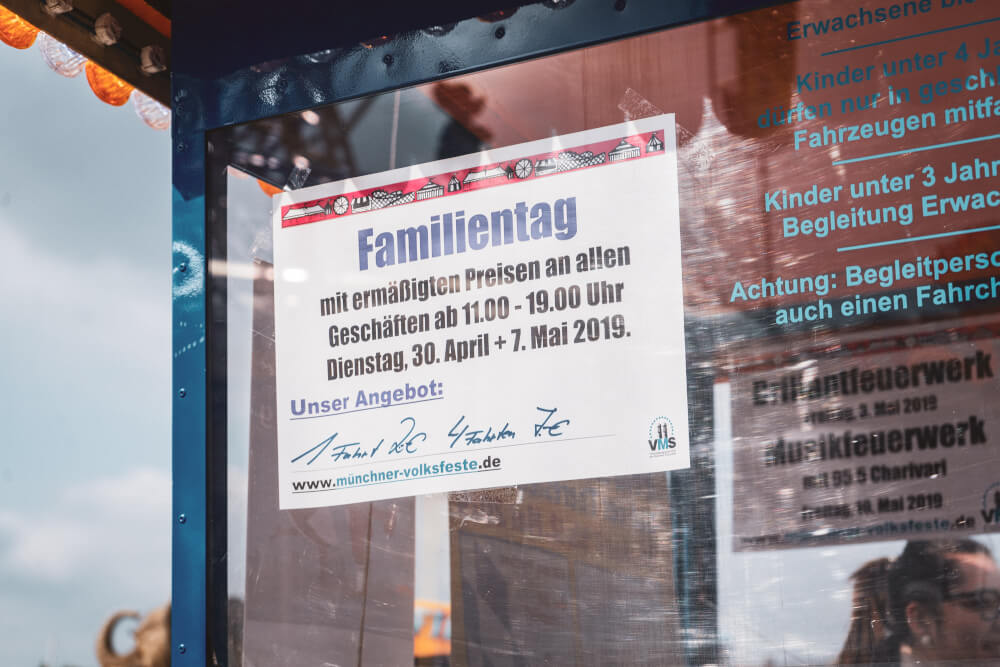 Familientag
mit ermäßigten Preisen an allen
Geschäften ab 11.00 - 19.00 Uhr
Dienstag, 30. April + 7. Mai 2019.
Unser Angebot:
1 Fahrt 2.€ 4 Fahrten 7.€
www.münchner-volksfeste.de
VMS
Erwachsene
Kinder unter 4 J
dürfen nur in gesch
Fahrzeugen mitfa
Kinder unter 3 Jahr
Begleitung Erwac
Achtung: Begleitperso
auch einen Fahrch
Brillantfeuerwerk
Freitag, 3. Mai 2019
Musikfeuerwerk
mit 95.5 Charivari
Freitag, 10. Mai 2019
-volksfeste.de